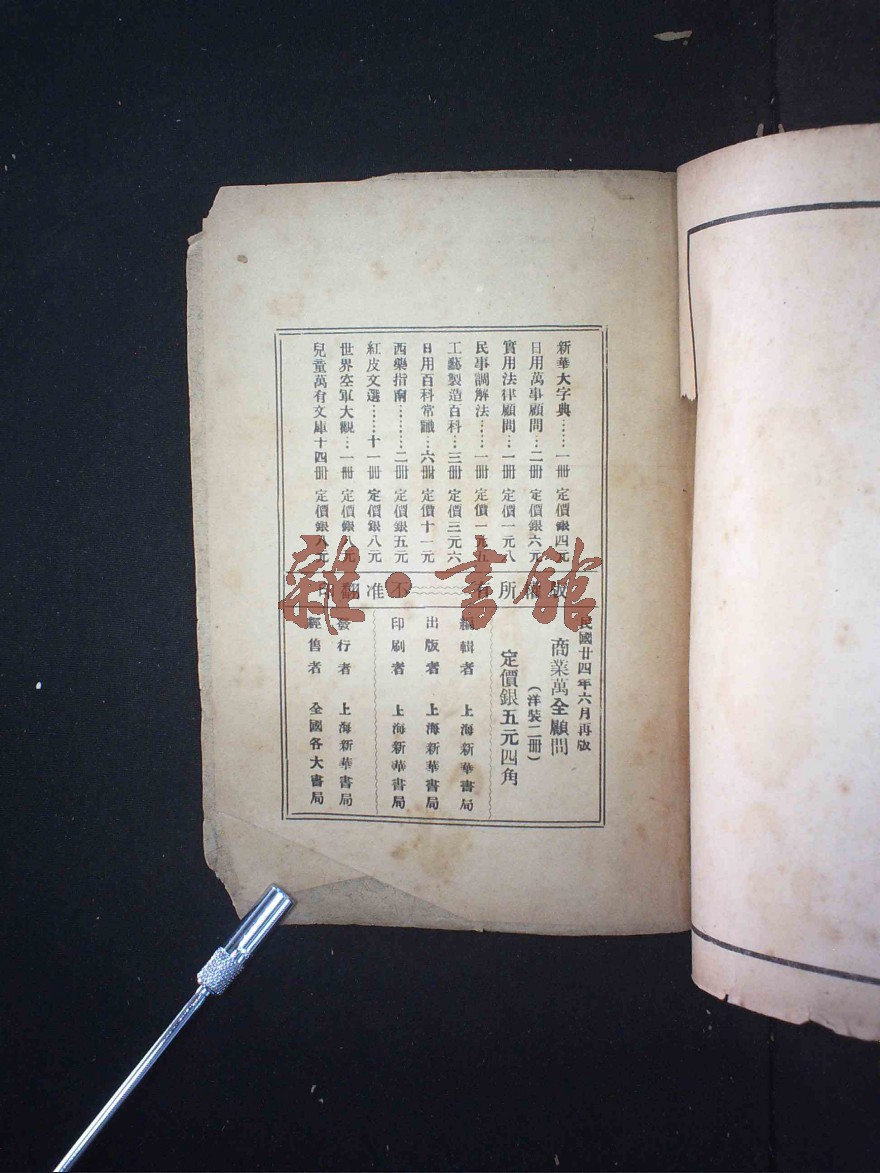 新華大字典……一冊 定價銀四元
日用萬事顧問…二冊 定價銀六元
實用法律顧問…一冊 定價一元八
民事調解法……一冊 定價一元五
工藝製造百科…三冊 定價三元六
日用百科常識…六冊 定價十一元
西藥指南………二冊 定價銀五元
紅皮文選……十一冊 定價銀八元
世界空軍大觀…一冊 定價銀八元
兒童萬有文庫十四冊 定價銀八元
版權所有 不准翻印
民國廿四年六月再版
商業萬全顧問
(洋裝二冊)
定價銀五元四角
編輯者 上海新華書局
出版者 上海新華書局
印刷者 上海新華書局
發行者 上海新華書局
經售者 全國各大書局
雜·書館